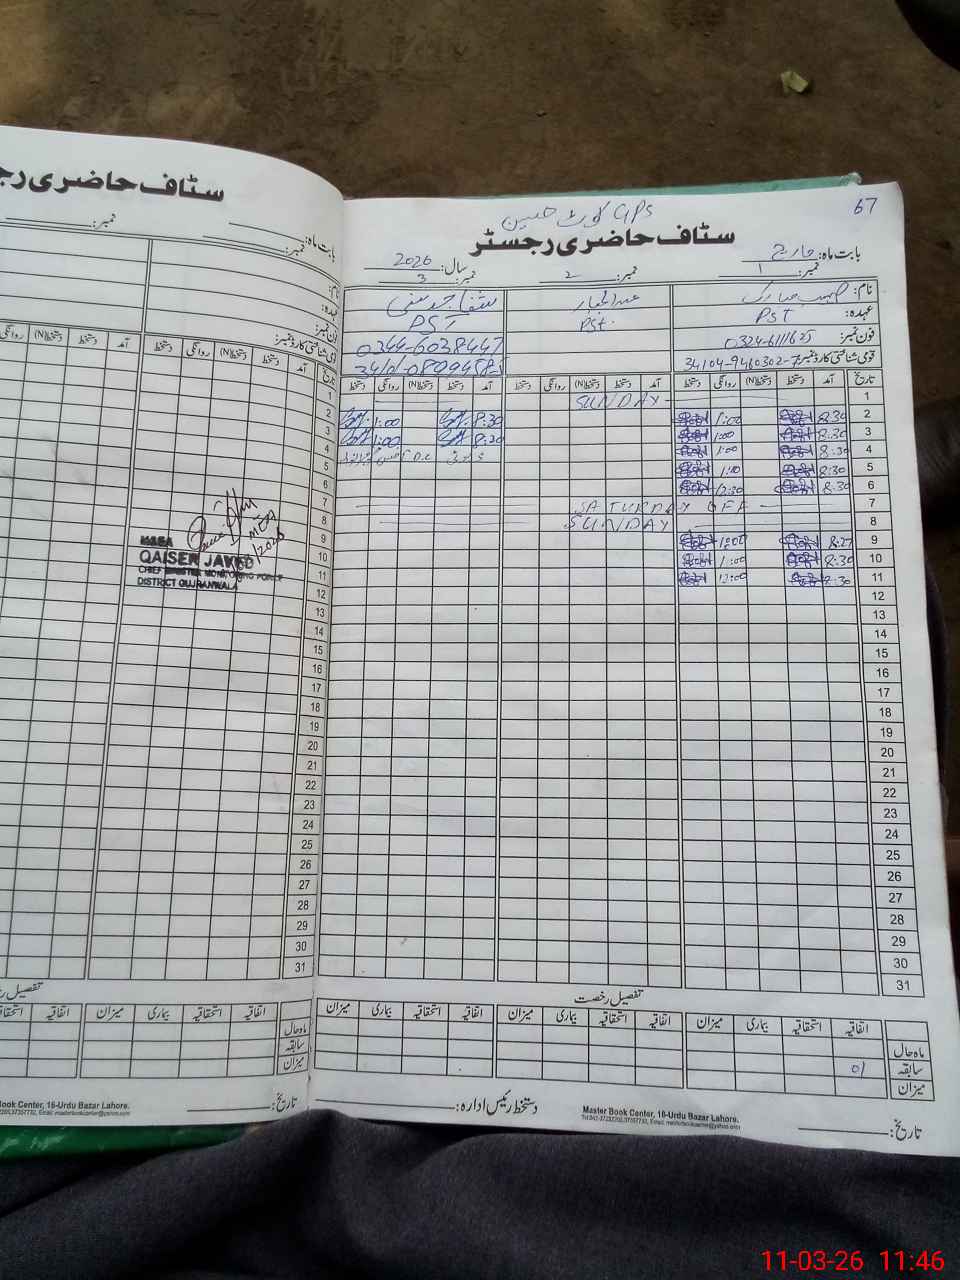 67
GPS کوٹ حسین
سٹاف حاضری رجسٹر
بابت ماہ: مارچ
سال: 2026
نمبر: 1
نمبر: 2
نمبر: 3
نام:
عبدالجبار
عہدہ: PST
PSt.
PST
فون نمبر: 0324-6111625
0344-6038447
قومی شناختی کارڈ نمبر: 34104-9460302-7
تاریخ آمد دستخط دستخط(N) روانگی دستخط آمد دستخط دستخط(N) روانگی دستخط آمد دستخط دستخط(N) روانگی دستخط
1 SUNDAY
2 8:30 1:00 8:30 1:00
3 8:30 1:00 8:30 1:00
4 8:30 1:00
5 8:30
6 8:30 12:30
7 SATURDAY OFF
8 SUNDAY
9 8:27
10 8:30 1:00
11 8:30 12:00
12
13
14
15
16
17
18
19
20
21
22
23
24
25
26
27
28
29
30
31
تفصیل رخصت
اتفاقیہ استحقاقیہ بیماری میزان اتفاقیہ استحقاقیہ بیماری میزان اتفاقیہ استحقاقیہ بیماری میزان
ماہ حال
سابقہ 01
میزان
دستخط رئیس ادارہ:
تاریخ:
Master Book Center, 16-Urdu Bazar Lahore.
سٹاف حاضری رج
بابت ماہ:
نمبر:
نمبر:
نام:
عہدہ:
فون نمبر:
تاریخ آمد دستخط دستخط(N) روانگی دستخط آمد دستخط دستخط(N) روانگی
1
2
3
4
5
6
7
8
9
10
11
12
13
14
15
16
17
18
19
20
21
22
23
24
25
26
27
28
29
30
31
MEA
QAISER JAVED
CHIEF MINISTER MONITORING FORCE
DISTRICT GUJRANWALA
تفصیل
اتفاقیہ استحقاقیہ بیماری میزان اتفاقیہ استحقاقیہ
ماہ حال
سابقہ
میزان
تاریخ:
ook Center, 16-Urdu Bazar Lahore.
11-03-26 11:46